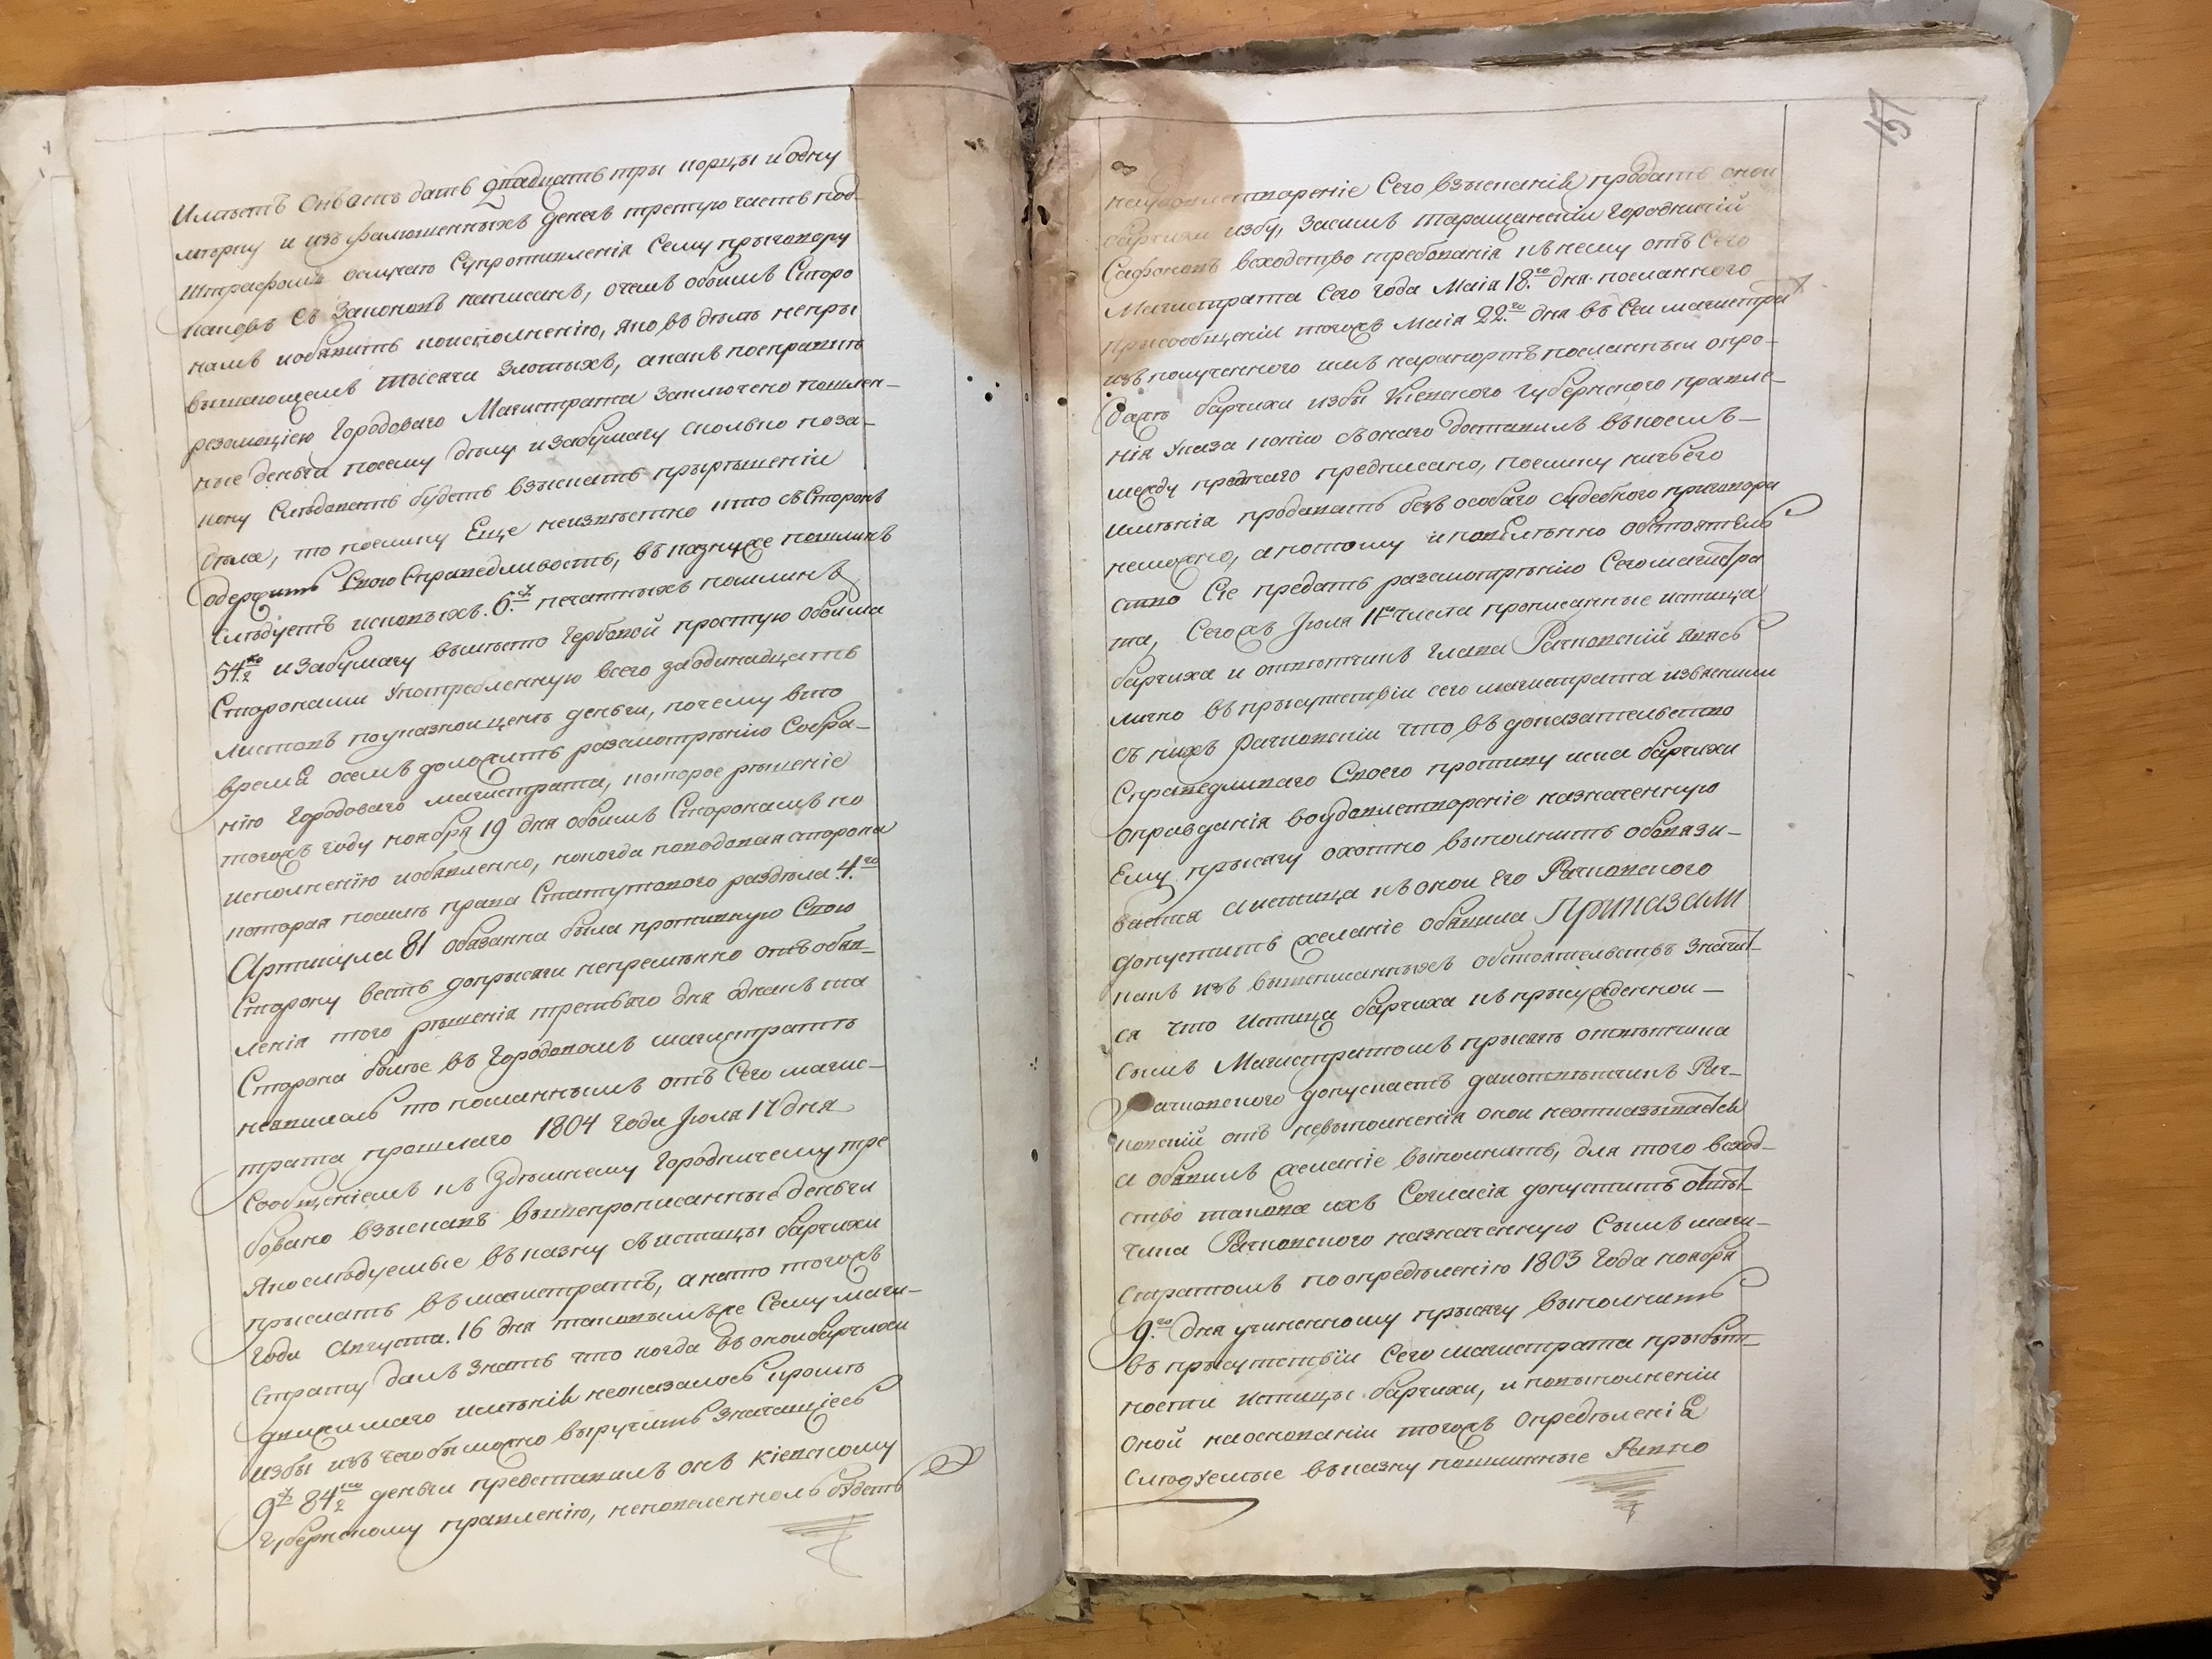 имѣетъ онъ дать дватцать три корцы и одну
мѣрку и изъ фалюшенныхъ денегъ третую часть под
штрафомъ вслучаю супротивленія сему прыговору
каковъ съ законовъ написанъ, о чемъ обоимъ Сторо
намъ иобявить кисполненію, яко въ дѣлѣ непры
вышающемъ тысячи злотыхъ, а какъ посправить
резолюціею Городоваго Магистрата заключено пошлен-
ные деньги посему дѣлу и забумагу сколько поза-
кону слѣдовать будетъ взыскать прырѣшеніи
дѣла, то поелику Еще неизвѣстно кто съ Сторонъ
одержитъ свою справедливость, въ казну же пошлинъ
слѣдуетъ исковыхъ 6. печатныхъ пошлинъ
54 и забумагу вмѣсто гербовой простую обоима
Сторонами употребленную всего заодинадцать
листовъ поуказной ценѣ деньги, почему въ то
время осемъ доложить разсмотрѣнію Собра-
нію Городоваго магистрата, которое рѣшеніе
тогожъ году ноября 19 дня обоимъ Сторонамъ ко
исполненію иобявленно, но когда поводовая сторона
которая посилѣ права Статутового раздѣла 4.го
Артикула 81 обязанна была противную свою
Сторону весть допрысяги непремѣнно отъ обяв-
ленія того рѣшенія третьяго дня однакъ та
Сторона болѣе въ Городовомъ магистратѣ
неявилась то посланнымъ отъ Сего магис-
трата прошлаго 1804 года Іюля 17 дня
сообщеніемъ къ здѣшнему Городничему тре
бовано взыскавъ вышепрописанные деньги
яко слѣдуемые въ казну съ истицы барчихи
прыслать въ магистратъ, а на то тогожъ
года Августа 16 дня таковымъ же Сему маги-
страту далъ знать что когда въ оной барчихи
движимаго имѣнія неоказалось кромѣ
избы изъ чего бы можно выручить значащіесь
9 84 деньги представилъ онъ кіевскому
Губернскому правленію, неповеленноль будетъ
наудовлетвореніе Сего взысканія продать оной
барчихи избу, засимъ таращанскій городничій
Сафоновъ всходство требованія къ нему отъ Сего
Магистрата Сего года Маія 18.го дня посланного
прысообщеніи тогожъ Маія 22.го дня въ Сей магистра
изъ полученного имъ нарапортъ посланный опро-
дажѣ барчихи избы Кіевского Губернского правле-
нія указа копію съ онаго доставилъ въ коемъ
между протчаго предписано, поелику ничьего
имѣнія продавать безъ особаго судебного приговора
неможно, а потому и повелѣнно обстоятель
ство Сіе предать разсмотрѣнію Сего магистра
та, Сегожъ Іюля 11го числа прописанные истица
барчиха и ответчикъ глава Рачковскій явясь
лично въ прысутствіи сего магистрата изъ коими
съ нихъ Рачковскій что въ доказательство
справедливаго Своего противу иска барчихи
оправданія воудовлетвореніе назначенную
Ему прысягу охотно выполнить обовязи-
вается а истица къ оной его Рачковского
допустить желаніе обявила Приказали
какъ изъ вышеписанныхъ обстоятельствъ значит-
ся что истица барчиха къ прысужденной
симъ Магистратомъ прысягѣ ответчика
Рачковского допускаетъ да и ответчикъ Рач-
ковскій отъ невыполненія оной неотказывается
и обявилъ желаніе выполнить, для того всход-
ство такова ихъ Согласія допустить отвѣт-
чика Рачковского назначенную Симъ маги-
стратомъ поопредѣленію 1803 года ноября
9.го дня учиненному прысягу выполнить
въ прысутствіи Сего магистрата прыбыт-
ности истицы барчихи, и повыполненіи
оной наоснованіи тогожъ опредѣленія
слѣдуемые въ казну пошлинные Равно